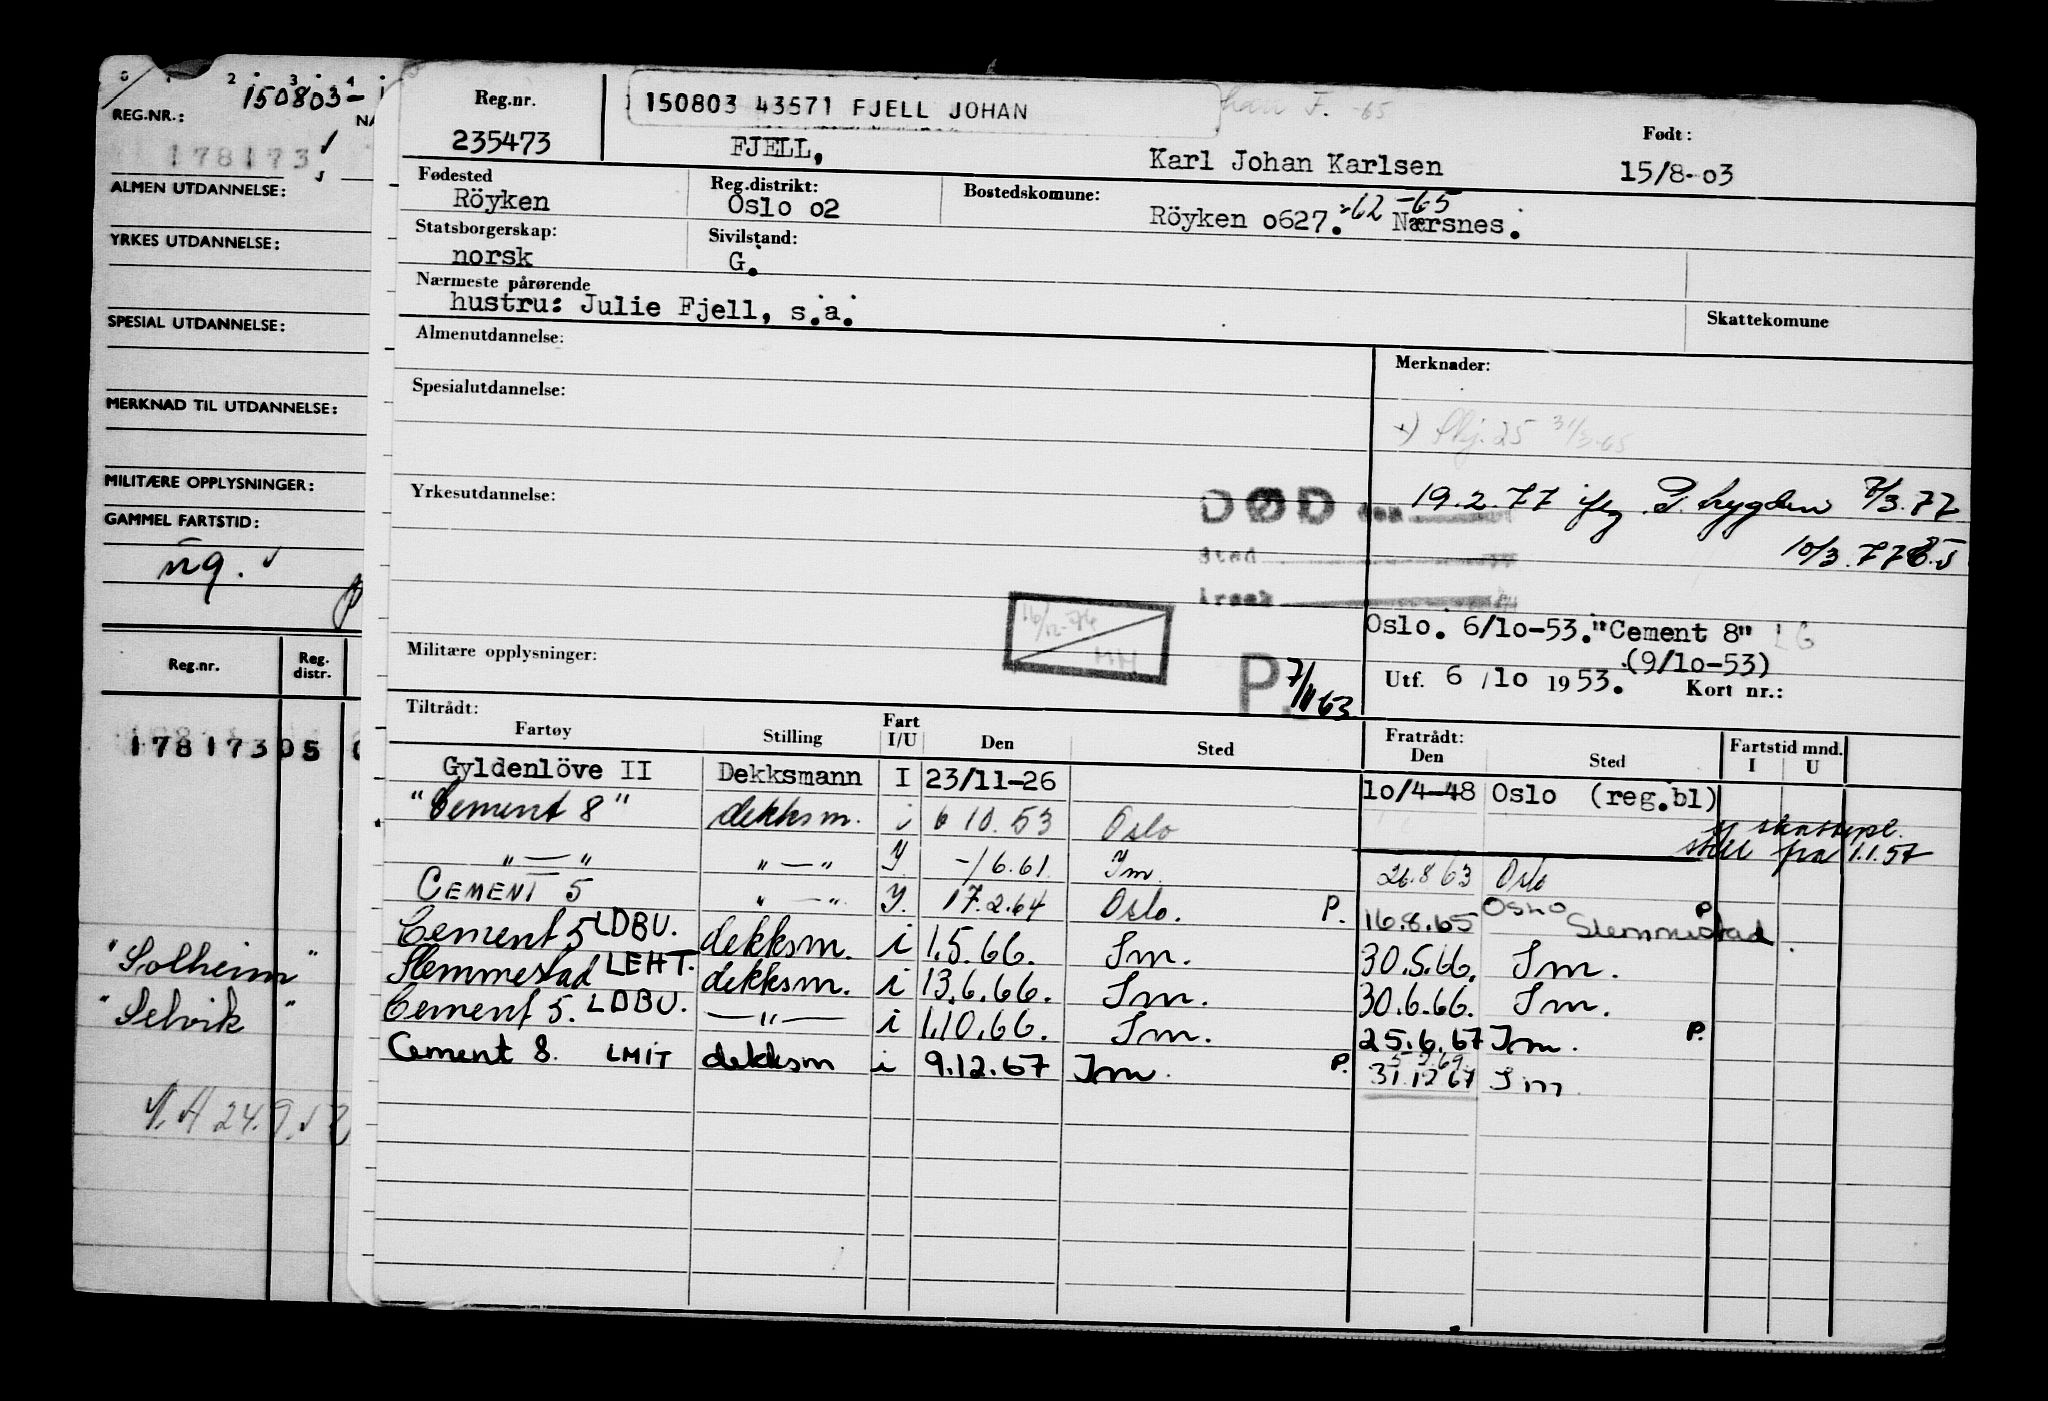 0 1 2 3 4
REG.NR.: 150803-
178173
ALMEN UTDANNELSE:
YRKES UTDANNELSE:
SPESIAL UTDANNELSE:
MERKNAD TIL UTDANNELSE:
MILITÆRE OPPLYSNINGER:
GAMMEL FARTSTID:
ng.
Reg.nr. Reg. distr.
178173 05
"Solheim"
"Selvik"
Reg.nr. 150803 43571 FJELL JOHAN
235473 FJELL, Karl Johan Karlsen Født: 15/8-03
Fødested Reg.distrikt: Bostedskomune:
Röyken Oslo o2 Röyken o627. -62 -65 Nærsnes.
Statsborgerskap: Sivilstand:
norsk G.
Nærmeste pårørende
hustru: Julie Fjell, s.a.
Skattekomune
Almenutdannelse: Merknader:
Spesialutdannelse:
31/3-65
Yrkesutdannelse:
DØD den 19.2.77 ifg. 7/3.77
Sted 10/3.77
Årsak
Oslo. 6/10-53. "Cement 8"
(9/10-53)
Militære opplysninger:
16/12-74
HH
P. 7/11 63
Utf. 6/10 1953. Kort nr.:
Tiltrådt: Fratrådt:
Fartøy Stilling Fart I/U Den Sted Den Sted Fartstid mnd. I U
Gyldenlöve II Dekksmann I 23/11-26 10/4-48 Oslo (reg.bl)
"Cement 8" dekksm. i 6 10.53 Oslo
fra 1.1.57
"—" "—" Y. -/6.61 Im. 26.8 63 Oslo
CEMENT 5 "—" Y. 17.2.64 Oslo. P. 16.8.65 Oslo Slemmestad P.
Cement 5 LDBU. dekksm. i 1.5.66. Im. 30.5.66. Im.
Slemmestad LEHT. dekksm. i 13.6.66. Im. 30.6.66. Im.
Cement 5. LDBU. —"— i 1.10.66. Im. 25.6.67 Im. P.
Cement 8. LMIT dekksm i 9.12.67 Im. P. 31.12 67 Im.